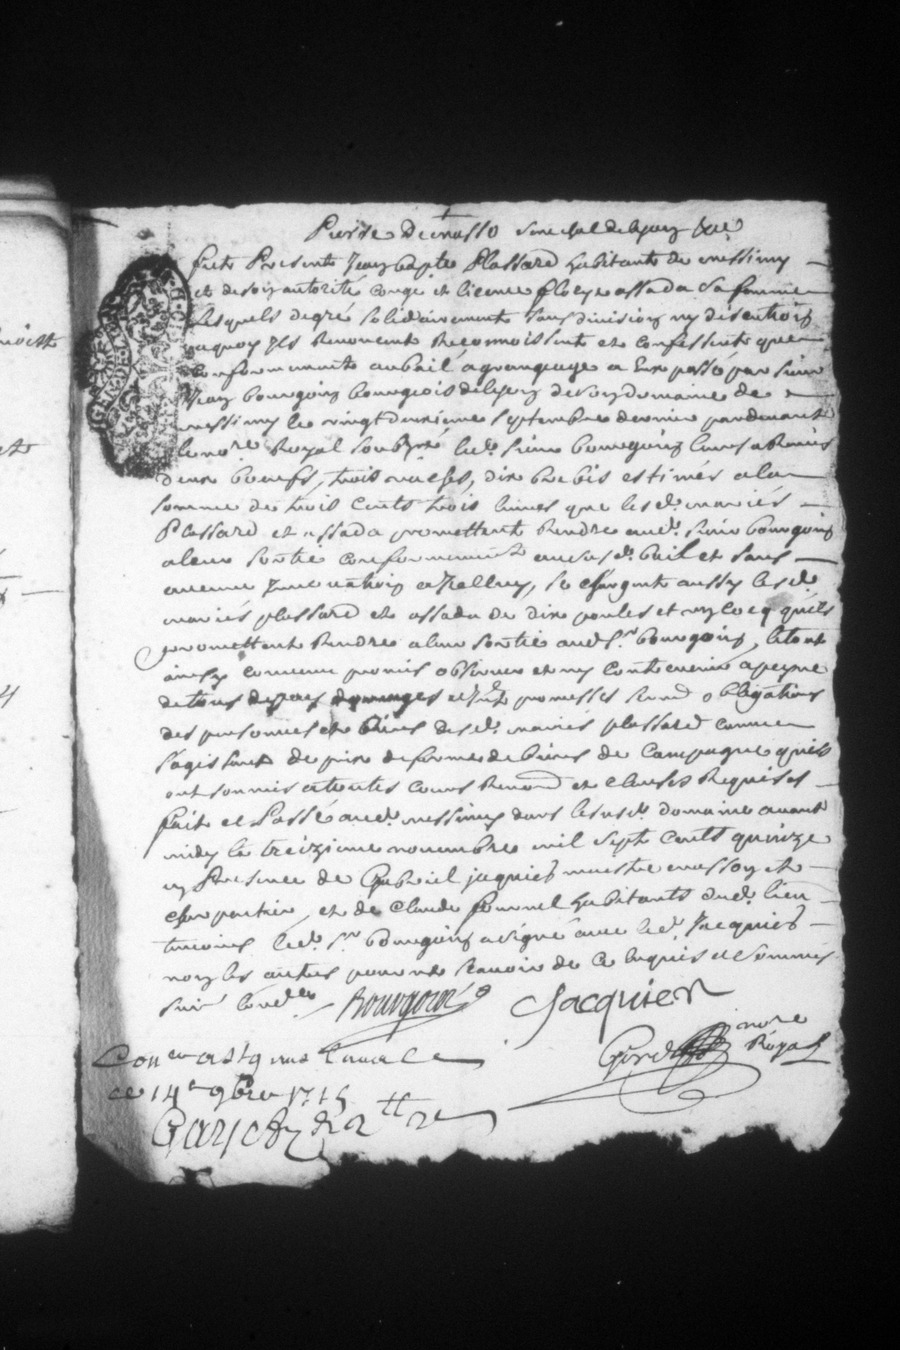 Pierre Decrusso senechal de lyon
furt Presents Jean bapte Plassard habitants de messimy
et de son autorité congé et licence assada sa femme
Lesquels de gré solidairement sans division ny discution
aquoy Ils Renoncent Reconnoissent et confessent que
conformement au bail a grangeage a Eux passé par sieur
Jean bourgoin bourgeois de lyon de son domaine de
messimy le vingt deuxieme septembre dernier pardevant
le nore Royal Soubzné led. sieur bourgoin leurs a Remis
deux boeufs, trois vaches, dix brebis estimés a la
somme de trois cents trois livres que lesd. mariés
Plassard et assada promettent Rendre aud. sieur bourgoin
a leur sortie conformement ausd. bail et sans
aucune Innovation a Icelluy, se chargent aussy lesd.
mariés plassard et assada de dix poules et un cocq quils
promettent Rendre a leur sortie aud. sr. bourgoin, le tout
ainsy comme promis observer et ny contrevenir a peyne
de tous despens dommages et promesses obligations
des personnes et biens desd. mariés plassard comme
s'agissant de prix de ferme de biens de campagne quils
ont soumis a toutes cours Renon et clauses Requises
fait et Passé aud. messimy dans lesusd. domaine avant
midy le treizieme novembre mil sept cents quinze
en Presence de Gabriel jaquier maistre masson et
charpentier, et de Claude fournel habitants dud. lieu
temoins led. sr. bourgoin a signé avec led. Jacquier
non les autres pour ne scavoir de ce Enquis et sommés
Bourgoin Jacquier
nore
Royal
ce 14e 9bre 1715